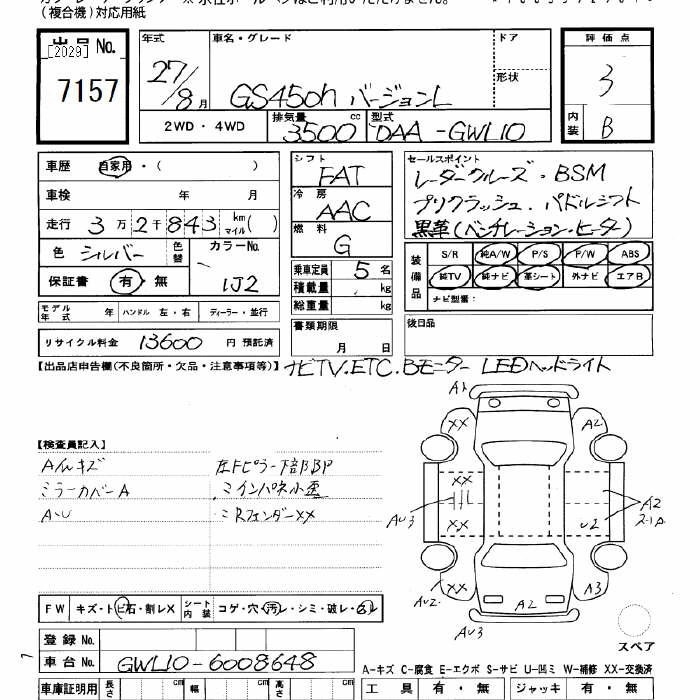 (複合機)対応用紙
出品 No.
[2029]
7157
年式 車名・グレード ドア 評価点
27/8月 GS450h バージョンL 形状 3
2WD・4WD 排気量 3500 cc 型式 DAA-GWL10 内装 B
車歴 自家用・( )
車検 年 月
走行 3万2千843 km マイル( )
色 シルバー 色替 カラーNo. 1J2
保証書 有・無
モデル年式 年 ハンドル 左・右 ディーラー・並行
リサイクル料金 13600 円 預託済
シフト FAT
冷房 AAC
燃料 G
乗車定員 5 名
積載量 kg
総重量 kg
書類期限
月 日
セールスポイント
レーダークルーズ・BSM
プリクラッシュ・パドルシフト
黒革(ベンチレーション・ヒーター)
装備品 S/R 純A/W P/S P/W ABS
純TV 純ナビ 革シート 外ナビ エアB
ナビ型番:
後日品
【出品店申告欄(不良箇所・欠品・注意事項等)】 ナビTV.ETC.Bモニター LEDヘッドライト
【検査員記入】
A/Wキズ 左Fピラー下部BP
ミラーカバーA ミインパネ小歪
A・U ミRフェンダーXX
A1
XX A2
XX
XX
AU3 U2 A2
AU2 XX A3
A2
AU3
スペア
FW キズ・トビ石・割レX シート内装 コゲ・穴・汚レ・シミ・破レ・
登録 No.
車台 No. GWL10-6008648
A-キズ C-腐食 E-エクボ S-サビ U-凹ミ W-補修 XX-交換済
車庫証明用 長さ cm 幅 cm 高さ cm 工具 有・無 ジャッキ 有・無